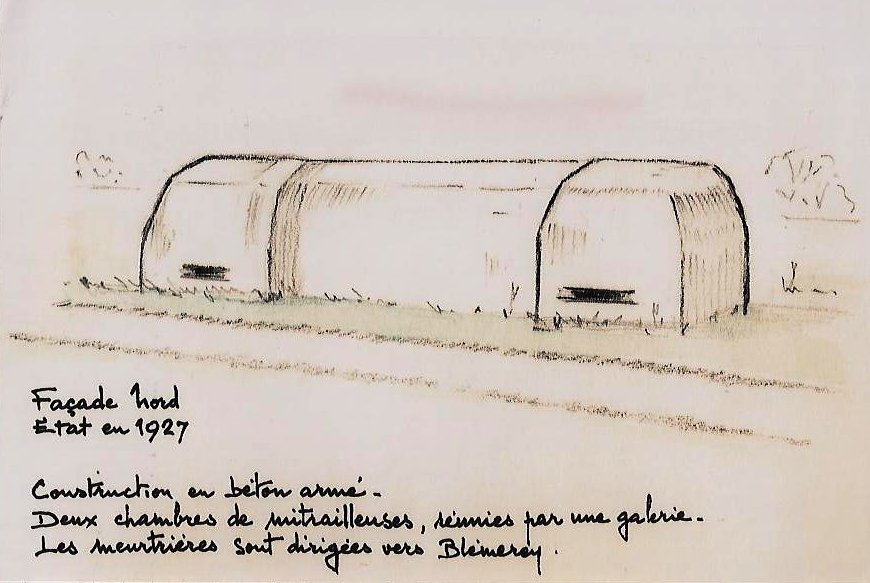 Façade Nord
Etat en 1927
Construction en béton armé.
Deux chambres de mitrailleuses, réunies par une galerie.
Les meurtrières sont dirigées vers Blémerey.